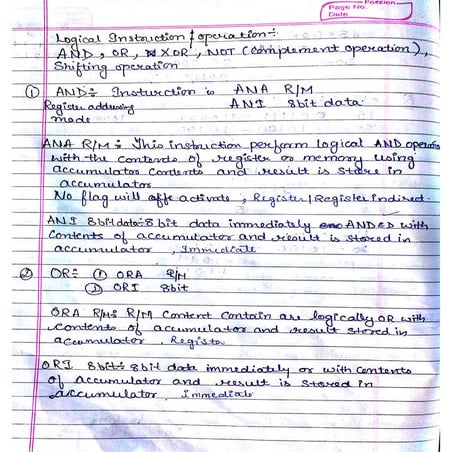 Passion
Page No.
Date
Logical Instruction / operation:-
AND, OR, XOR, NOT (Complement operation),
Shifting operation
① AND:- Insturction is ANA R/M
Register addressing ANI 8bit data
mode
ANA R/M:- This instruction perform logical AND operatio
with the contents of register or memory using
accumulator contents and result is store in
accumulator
No flag will activate, Register/Register indirect.
ANI 8bit data:- 8 bit data immediately ANDED with
contents of accumulator and result is stored in
accumulator, Immediate
② OR:- ① ORA R/M
② ORI 8bit
ORA R/M:- R/M content contain are logically OR with
contents of accumulator and result stored in
accumulator. Registe
ORI 8bit:- 8bit data immediately or with contents
of accumulator and result is stored in
accumulator, Immediate